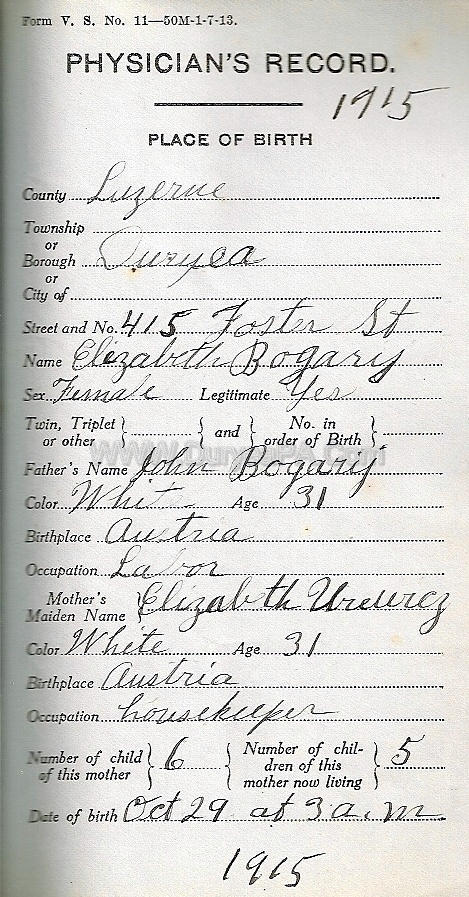 Form V. S. No. 11—50M-1-7-13.
PHYSICIAN'S RECORD.
1915
PLACE OF BIRTH
County Luzerne
Township
or
Borough Duryea
or
City of
Street and No. 415 Foster St
Name Elizabeth Bogary
Sex Female Legitimate Yes
Twin, Triplet or other } { and } No. in order of Birth }
www.DuryeaPA.com
Father's Name John Bogary
Color White Age 31
Birthplace Austria
Occupation Labor
Mother's Maiden Name } Elizabeth
Color White Age 31
Birthplace Austria
Occupation housekeeper
Number of child of this mother } 6 { Number of children of this mother now living } 5
Date of birth Oct 29 at 3 a.m.
1915